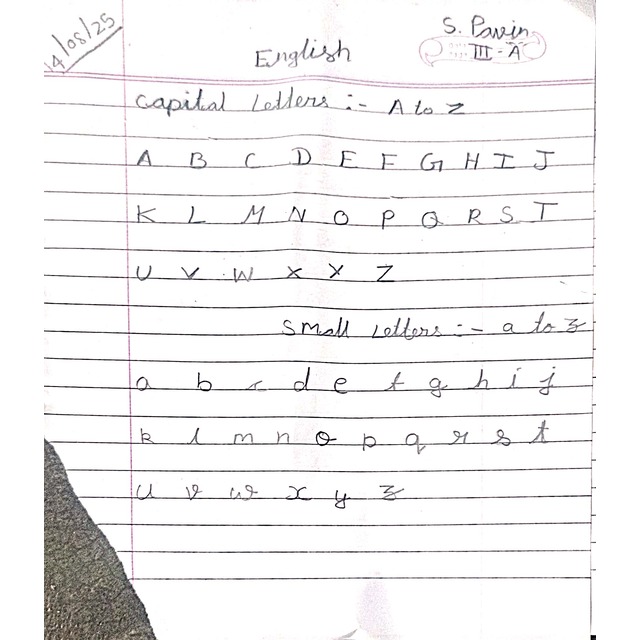 14/08/25
S. Pavin
III - A
English
Capital Letters :- A to Z
A B C D E F G H I J
K L M N O P Q R S T
U V W X Y Z
Small Letters :- a to z
a b c d e f g h i j
k l m n o p q r s t
u v w x y z